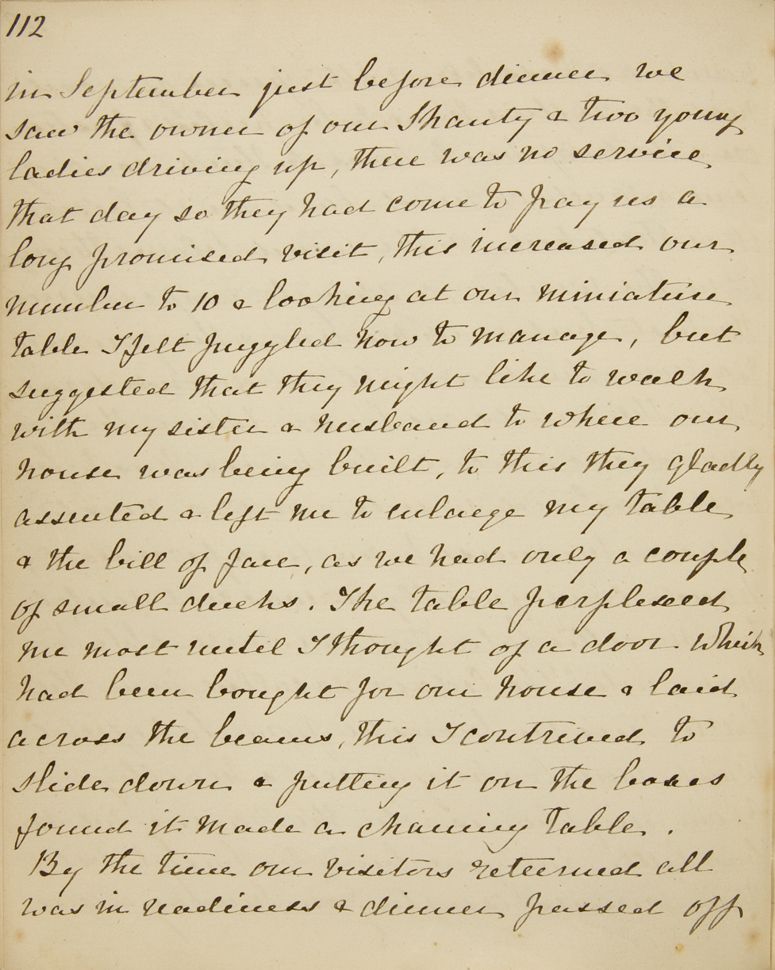 112
in September just before dinner we
saw the owner of our Shanty & two young
ladies driving up, there was no service
that day so they had come to pay us a
long promised visit, this increased our
number to 10 & looking at our miniature
table I felt puzzled how to manage, but
suggested that they might like to walk
with my sister & husband to where our
house was being built, to this they gladly
assented & left me to enlarge my table
& the bill of fare, as we had only a couple
of small ducks. The table perplexed
me most until I thought of a door which
had been bought for our house & laid
across the beams, this I contrived to
slide down & putting it on the boxes
found it made a charming table.
By the time our visitors returned all
was in readiness & dinner passed off